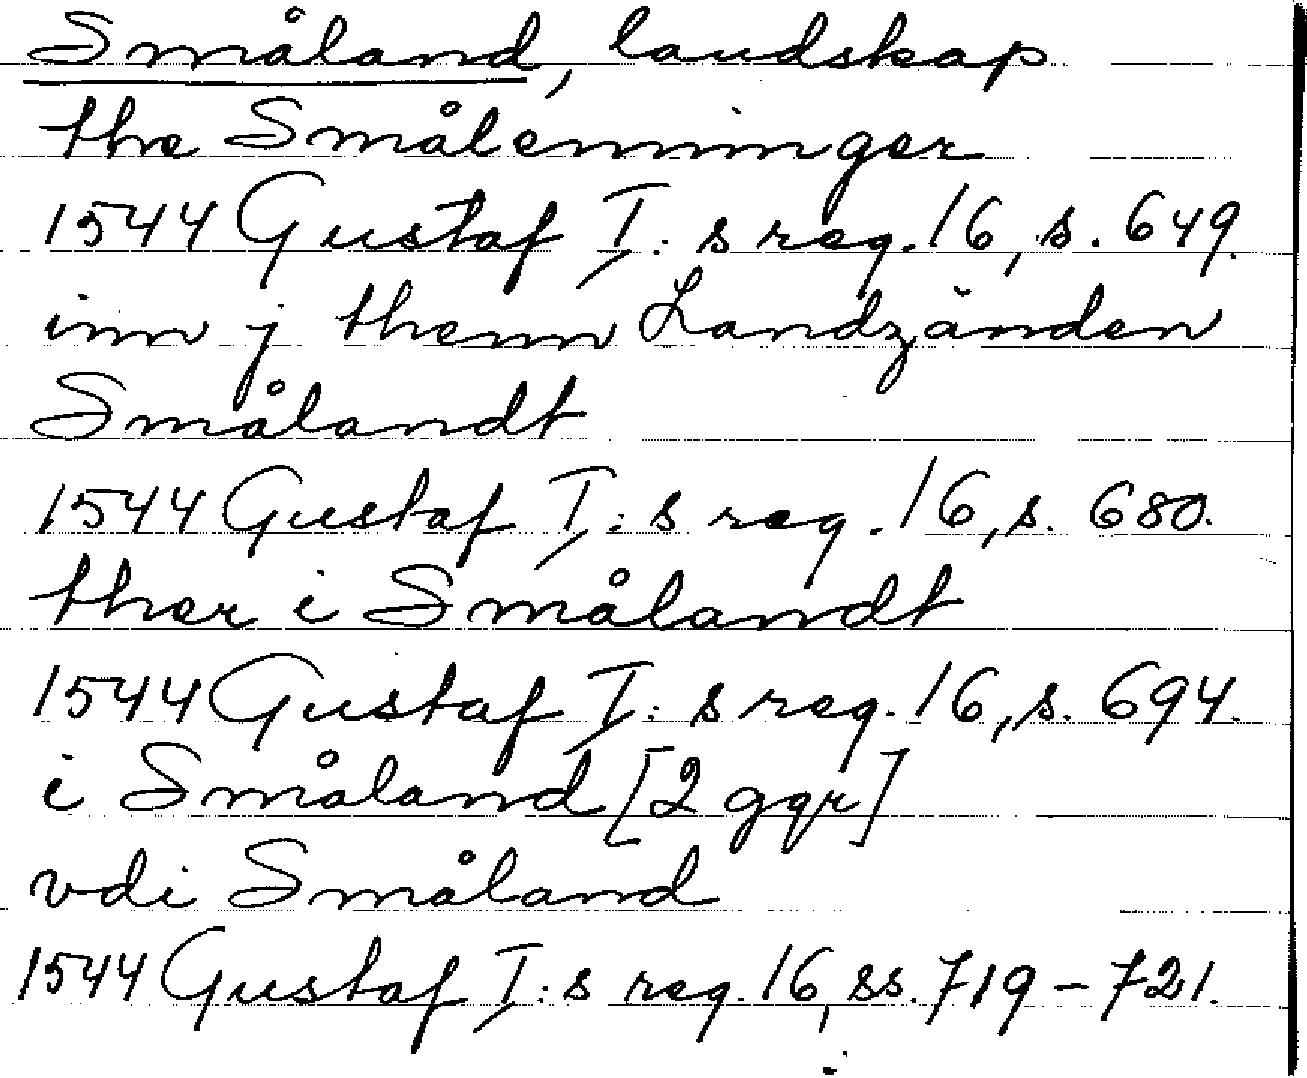 Småland, landskap
the Smålenninger
1544 Gustaf I:s reg. 16, s. 649.
inn j thenn Landzänden
Smålandt
1544 Gustaf I:s reg. 16, s. 680.
ther i Smålandt
1544 Gustaf I:s reg. 16, s. 694.
i Småland [2 ggr]
vdi Småland
1544 Gustaf I:s reg. 16, ss. 719-721.